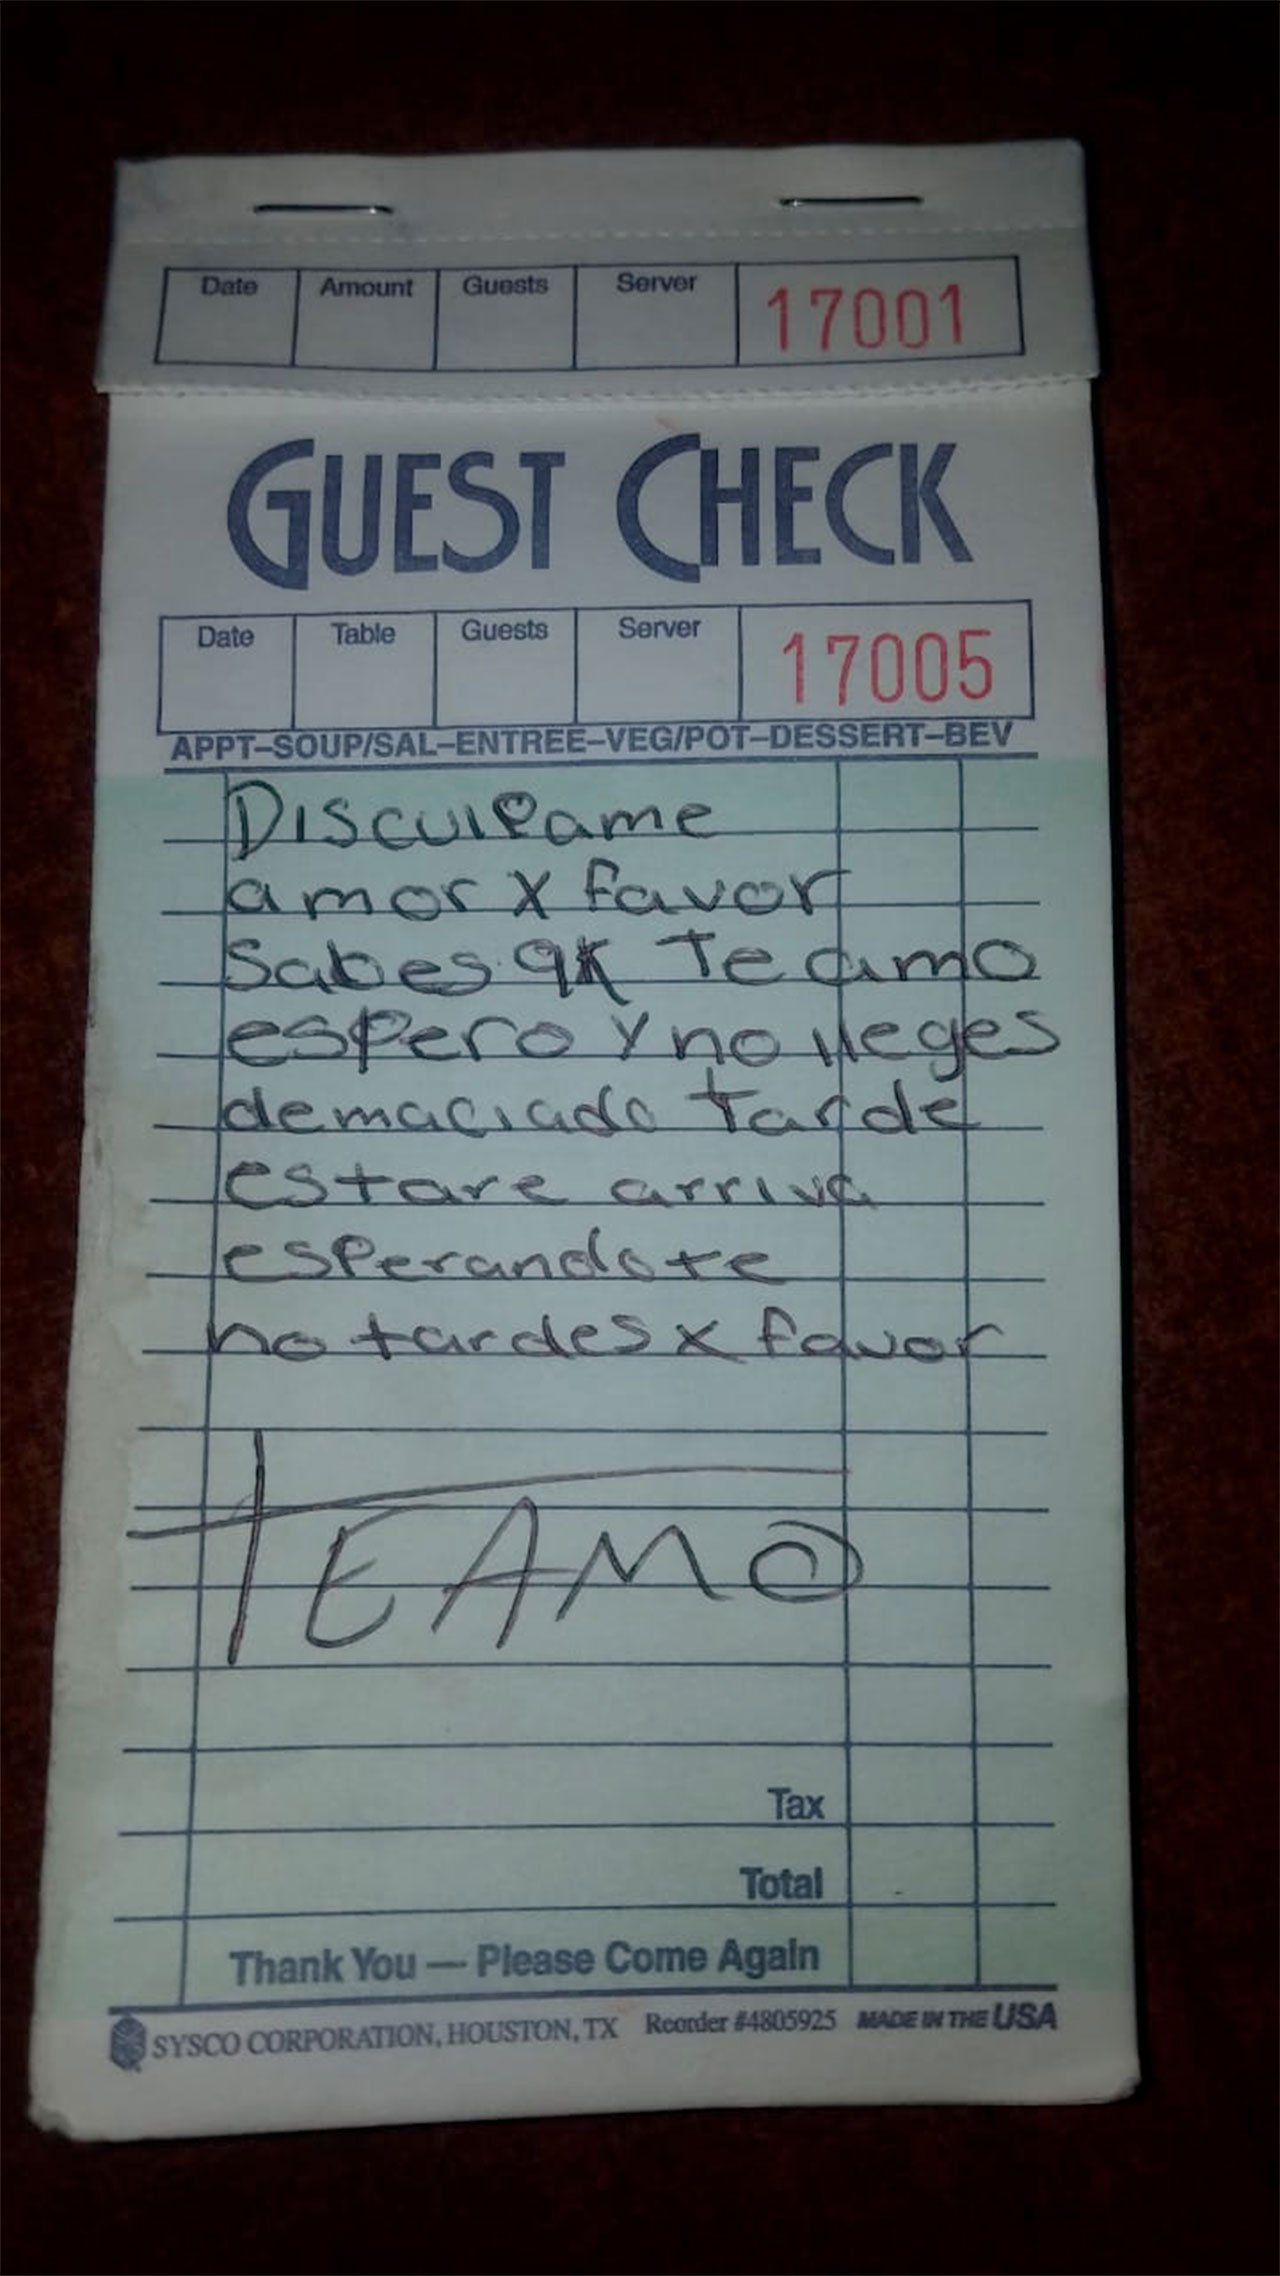 Date Amount Guests Server 17001
GUEST CHECK
Date Table Guests Server 17005
APPT–SOUP/SAL–ENTREE–VEG/POT–DESSERT–BEV
Disculpame
amor x favor
Sabes qk Te amo
espero y no lleges
demaciado tarde
estare arriva
esperandote
no tardes x favor
TEAMO
Tax
Total
Thank You — Please Come Again
SYSCO CORPORATION, HOUSTON, TX Reorder #4805925 MADE IN THE USA